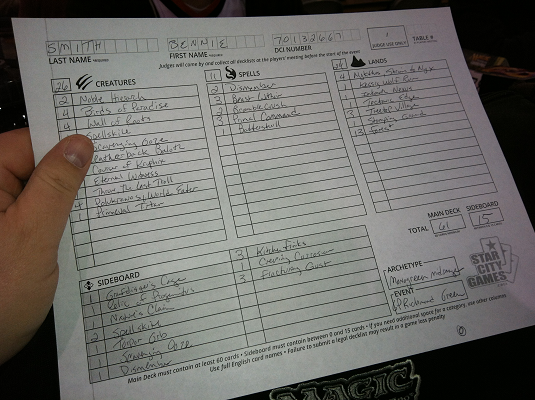 SMITH
BENNIE
70132667
LAST NAME
FIRST NAME
DCI NUMBER
JUDGE USE ONLY
TABLE #
Judges will come by and collect all decklists at the players' meeting before the start of the event
26 CREATURES
2 Noble Hierarch
4 Birds of Paradise
4 Wall of Roots
Spellskite
Scavenging Ooze
Leatherback Baloth
Courser of Kruphix
Eternal Witness
Thrun, the Last Troll
4 Polukranos, World Eater
1 Primeval Titan
11 SPELLS
2 Dismember
3 Beast Within
2
3 Primal Command
1 Batterskull
24 LANDS
4
1 Kessig Wolf Run
1
Tectonic Edge
3 Treetop Village
Stomping Ground
13 Forest
MAIN DECK
SIDEBOARD
TOTAL
61
15
SIDEBOARD
1 Grafdigger's Cage
1
1 Nature's Claim
2 Spellskite
1
1 Scavenging Ooze
1 Dismember
3 Kitchen Finks
Creeping Corrosion
3 Fracturing Gust
ARCHETYPE
EVENT
GP Richmond
STAR CITY GAMES
Main Deck must contain at least 60 cards • Sideboard must contain between 0 and 15 cards • If you need additional space for a category, use other columns
Use full English card names • Failure to submit a legal decklist may result in a game loss penalty
MAGIC